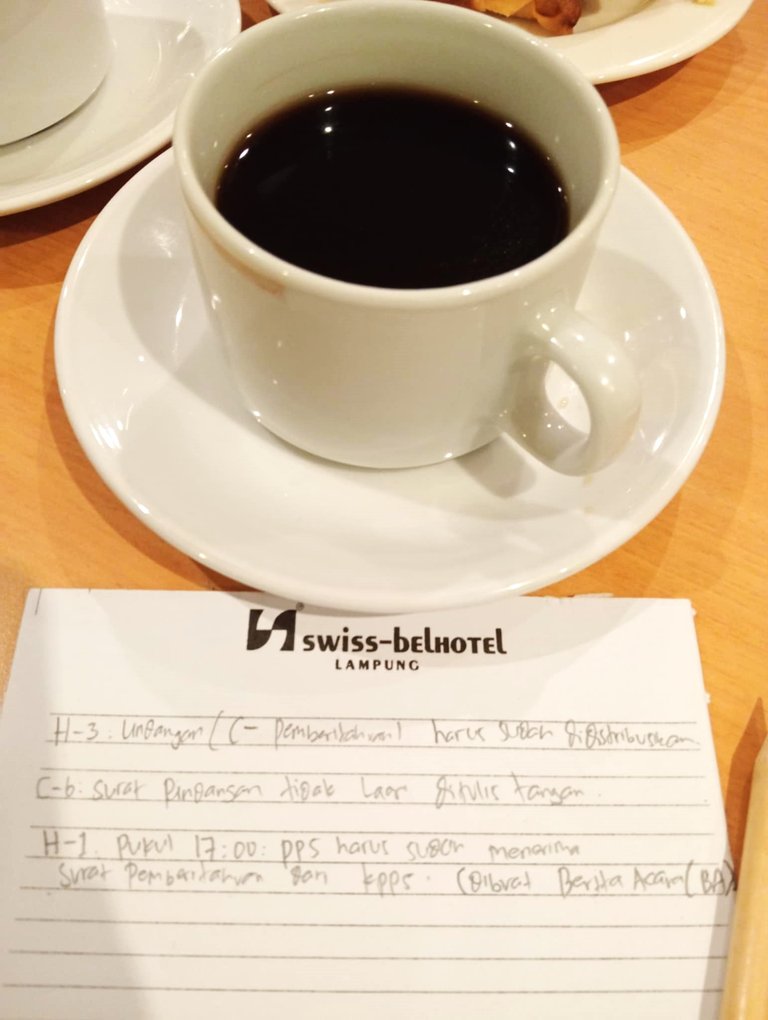 swiss-belHOTEL
LAMPUNG
H-3. Undangan (C-Pemberitahuan) harus sudah didistribusikan.
C-6: Surat tidak tulis tangan.
H-1. Pukul 17:00: PPS harus sudah menerima
Surat Pemberitahuan dari KPPS. (Dibuat Berita Acara (BA)